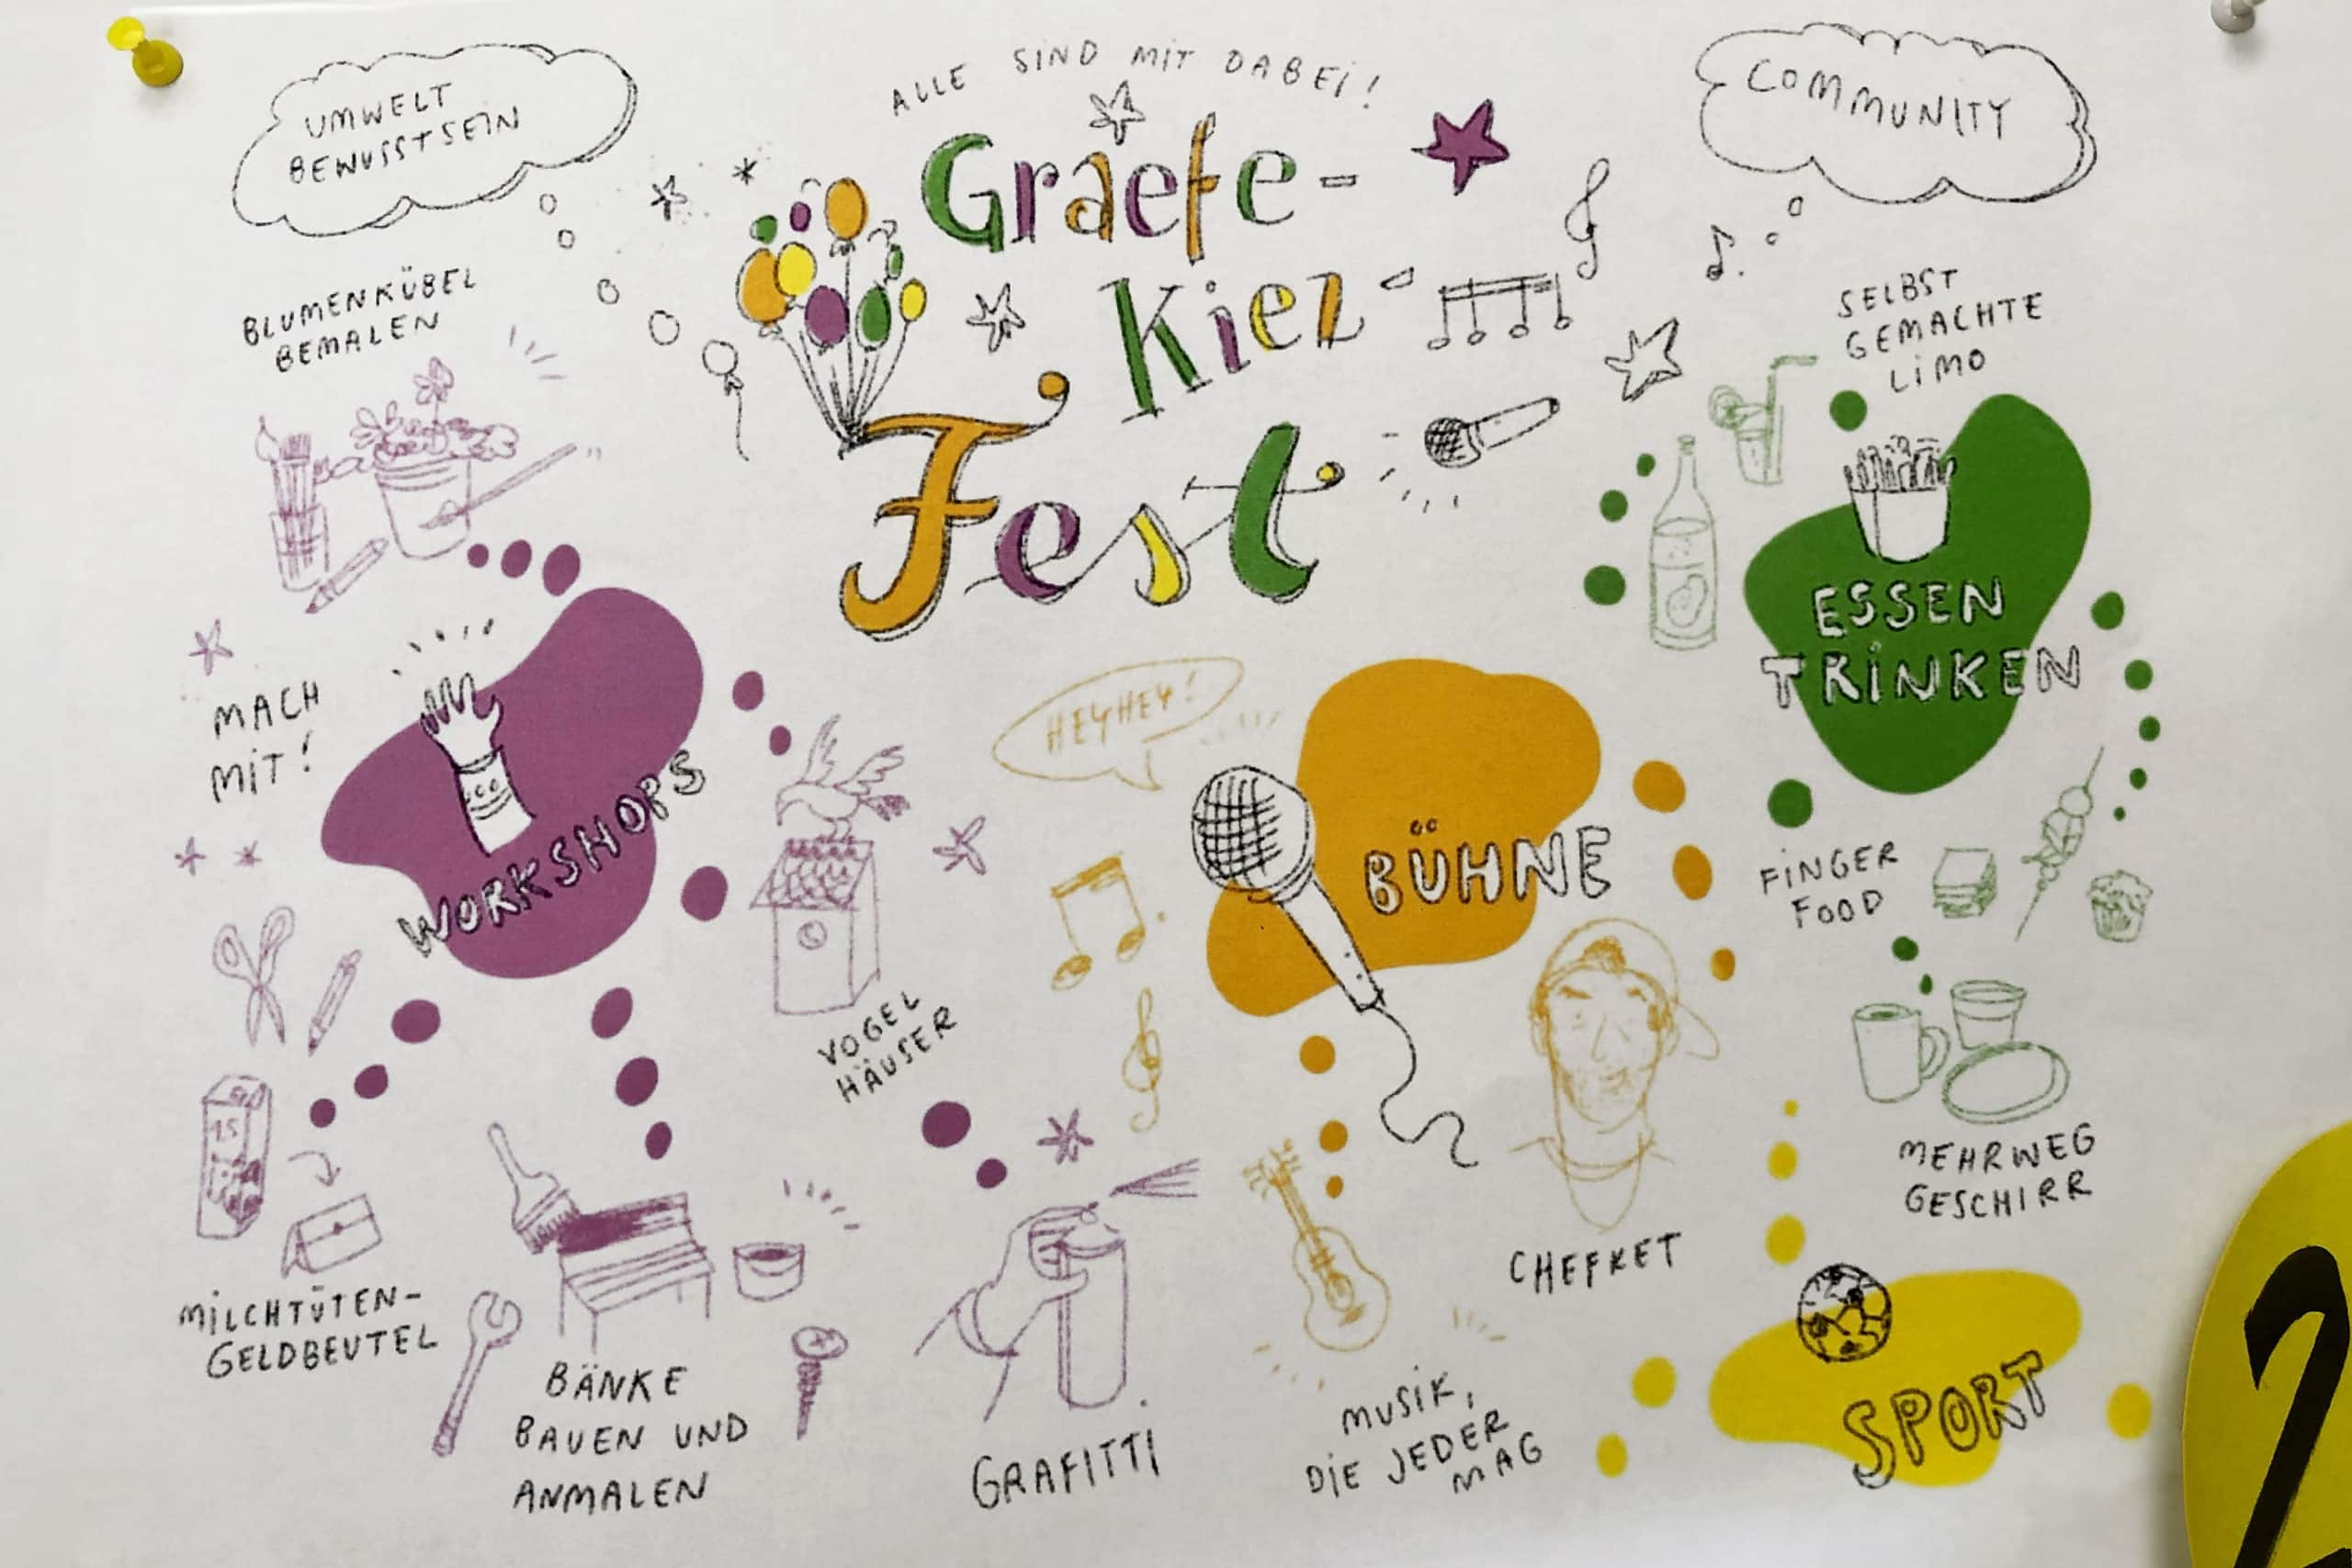 ALLE SIND MIT DABEI!
Graefe-
Kiez-
Fest
UMWELT
BEWUSSTSEIN
COMMUNITY
BLUMENKÜBEL
BEMALEN
MACH
MIT!
WORKSHOPS
VOGEL
HÄUSER
1,5
MILCHTÜTEN-
GELDBEUTEL
BÄNKE
BAUEN UND
ANMALEN
GRAFITTI
HEYHEY!
BÜHNE
CHEFKET
MUSIK,
DIE JEDER
MAG
SELBST
GEMACHTE
LIMO
ESSEN
TRINKEN
FINGER
FOOD
MEHRWEG
GESCHIRR
SPORT
2